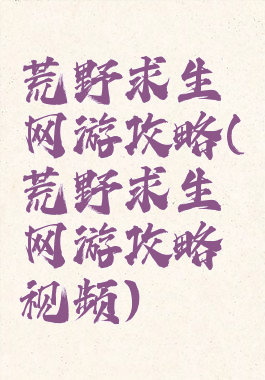 荒野求生
网游攻略(
荒野求生
网游攻略
视频)